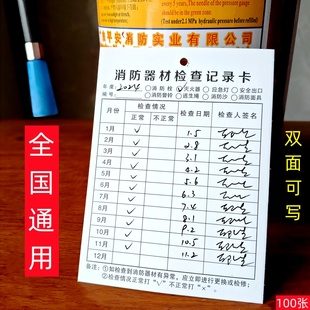 every 5 years. The needle of the pressure gauge should be
in the green zone.
(Test under2.1 MPa hydraulic pressure before refilled)
平安消防实业有限公司
消防器材检查记录卡
年度: 2024 □消防栓 ☑灭火器 □应急灯 □安全出口
编号: □消防警铃 □逃生绳 □消防沙 □消防面具
月份 检查情况 检查日期 检查人签名
正常 不正常
1月 ✓ 1.5
2月 ✓ 2.8
3月 ✓ 3.1
4月 ✓ 4.2
5月 ✓ 5.6
6月 ✓ 6.3
7月 ✓ 7.4
8月 ✓ 8.1
9月 ✓ 9.2
10月 ✓ 10.5
11月 ✓ 11.2
12月
备注: ①如检查到消防器材有异常，应立即进行更换或检修；
②检查情况正常打"√"不正常打"×"。
全国通用
双面可写
100张